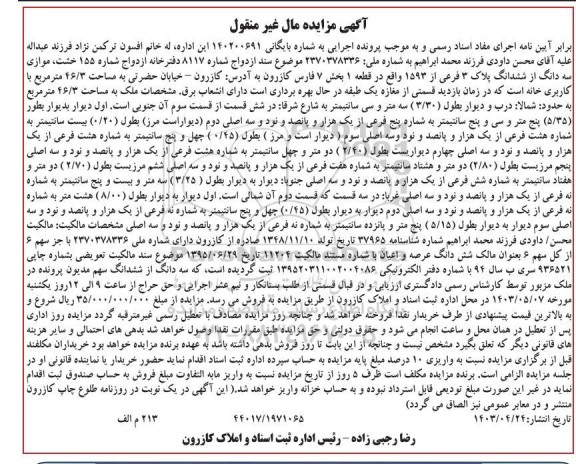 آگهی مزایده مال غیر منقول
برابر آیین نامه اجرای مفاد اسناد رسمی و به موجب پرونده اجرایی به شماره بایگانی ۱۴۰۲۰۰۶۹۱ این اداره، له خانم افسون ترکمن نژاد فرزند عبداله
علیه آقای محسن داودی فرزند محمد ابراهیم به شماره ملی: ۲۳۷۰۳۷۸۳۳۶ موضوع سند ازدواج شماره ۸۱۱۷ دفترخانه ازدواج شماره ۱۵۵ خشت، موازی
سه دانگ از ششدانگ پلاک ۳ فرعی از ۱۵۹۳ واقع در قطعه ۱ بخش ۷ فارس کازرون به آدرس: کازرون – خیابان حضرتی به مساحت ۴۶/۳ مترمربع با
کاربری خانه است که در زمان بازدید قسمتی از مغازه یک طبقه در حال بهره برداری است دارای انشعاب برق. مشخصات ملک به مساحت ۴۶/۳ مترمربع
به حدود: شمالا: درب و دیوار بطول (۳/۳۰) سه متر و سی سانتیمتر به شارع شرقا: در شش قسمت از قسمت سوم آن جنوبی است. اول دیوار بدیوار بطول
(۵/۳۵) پنج متر و سی و پنج سانتیمتر به شماره پنج فرعی از یک هزار و پانصد و نود و سه اصلی دوم (دیواراست مرز) بطول (۰/۲۰) بیست سانتیمتر به
شماره هشت فرعی از یک هزار و پانصد و نود و سه اصلی سوم ( دیوار است و مرز ) بطول (۰/۴۵) چهل و پنج سانتیمتر به شماره هشت فرعی از یک
هزار و پانصد و نود و سه اصلی چهارم دیواریست بطول (۲/۴۰) دو متر و چهل سانتیمتر به شماره هشت فرعی از یک هزار و پانصد و نود و سه اصلی
پنجم مرزیست بطول (۲/۸۰) دو متر و هشتاد سانتیمتر به شماره هفت فرعی از یک هزار و پانصد و نود و سه اصلی ششم مرزیست بطول (۲/۷۰) دو متر و
هفتاد سانتیمتر به شماره شش فرعی از یک هزار و پانصد و نود و سه اصلی جنوبا: دیوار به دیوار بطول (۳/۲۵) سه متر و بیست و پنج سانتیمتر به شماره
نه فرعی از یک هزار و پانصد و نود و سه اصلی غربا: در سه قسمت که قسمت دوم آن شمالی است. اول دیوار با دیوار بطول (۸/۰۰) هشت متر به شماره
نه فرعی از یک هزار و پانصد و نود و سه اصلی دوم دیوار به دیوار بطول (۰/۴۵) چهل و پنج سانتیمتر به شماره نه فرعی از یک هزار و پانصد و نود و سه
اصلی سوم دیوار به دیوار بطول (۵/۱۵) پنج متر و پانزده سانتیمتر به شماره نه فرعی از یک هزار و پانصد و نود و سه اصلی مشخصات مالکیت: مالکیت
محسن/ داودی فرزند محمد ابراهیم شماره شناسنامه ۳۷۹۶۵ تاریخ تولد ۱۳۴۸/۱۱/۱۰ صادره از کازرون دارای شماره ملی ۲۳۷۰۳۷۸۳۳۶ با جز سهم ۶
از کل سهم ۶ بعنوان مالک شش دانگ عرصه و اعیان با شماره مستند مالکیت ۱۱۲۰۴ تاریخ ۱۳۹۵/۰۶/۲۹ موضوع سند مالکیت تعویضی بشماره چاپی
۹۳۶۵۲۱ سری ب سال ۹۴ با شماره دفتر الکترونیکی ۱۳۹۵۲۰۳۱۱۰۰۲۰۰۴۰۸۶ ثبت گردیده است، که سه دانگ از ششدانگ سهم مدیون پرونده در
ملک مزبور توسط کارشناس رسمی دادگستری ارزیابی و در قبال قسمتی از طلب بستانکار و نیم عشر اجرایی و حق حراج از ساعت ۹ الی ۱۲روز یکشنبه
مورخه ۱۴۰۳/۰۵/۰۷ در محل اداره ثبت اسناد و املاک کازرون از طریق مزایده به فروش می رسد. مزایده از مبلغ ۳۵/۰۰۰/۰۰۰/۰۰۰ ریال شروع و
به بالاترین قیمت پیشنهادی از طرف خریدار نقدا فروخته خواهد شد و چنانچه روز مزایده مصادف با تعطیل رسمی غیرمترقبه گردد مزایده روز اداری
پس از تعطیل در همان محل و ساعت انجام می شود و حقوق دولتی و حق مزایده طبق مقررات نقدا وصول خواهد شد بدهی های احتمالی و سایر هزینه
های قانونی دیگر که تعلق بگیرد مشخص نیست و چنانچه از این بابت تا روز فروش بدهی داشته باشد به عهده برنده مزایده خواهد بود خریداران مکلفند
قبل از برگزاری مزایده نسبت به واریزی ۱۰ درصد مبلغ پایه مزایده به حساب سپرده اداره ثبت اسناد اقدام نماید حضور خریدار یا نماینده قانونی او در
جلسه مزایده الزامی است. برنده مزایده مکلف است ظرف ۵ روز از تاریخ مزایده نسبت به واریز مابه التفاوت مبلغ فروش به حساب صندوق ثبت اقدام
نماید در غیر این صورت مبلغ تودیعی قابل استرداد نبوده و به حساب خزانه واریز خواهد شد.( این آگهی در یک نوبت در روزنامه طلوع چاپ کازرون
منتشر و در معابر عمومی نیز الصاق می گردد)
تاریخ انتشار: ۱۴۰۳/۰۴/۲۴ ۴۴۰۱۷/۱۹۷۱۰۶۵ ۲۱۳ م الف
رضا رجبی زاده – رئیس اداره ثبت اسناد و املاک کازرون